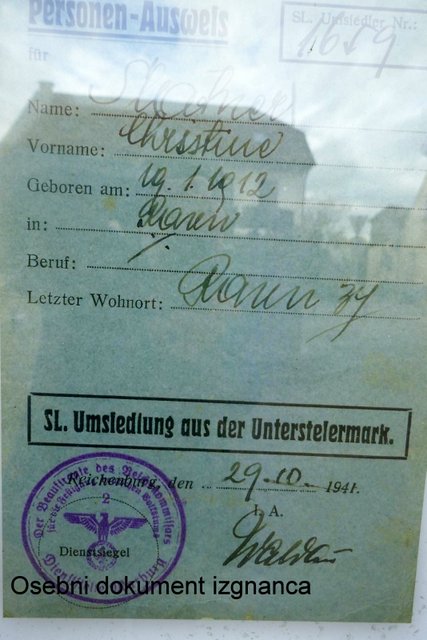 Personen-Ausweis
SL. Umsiedler Nr.:
1659
für
Name:
Vorname: Christine
Geboren am: 19.1.1912
in: Rann
Beruf:
Letzter Wohnort: Rann 34
SL. Umsiedlung aus der Untersteiermark.
Reichenburg, den 29.10. 1941.
I. A.
Der Beauftragte des Reichskommissars
für die Festigung deutschen Volkstums
2
Dienstsiegel
Osebni dokument izgnanca